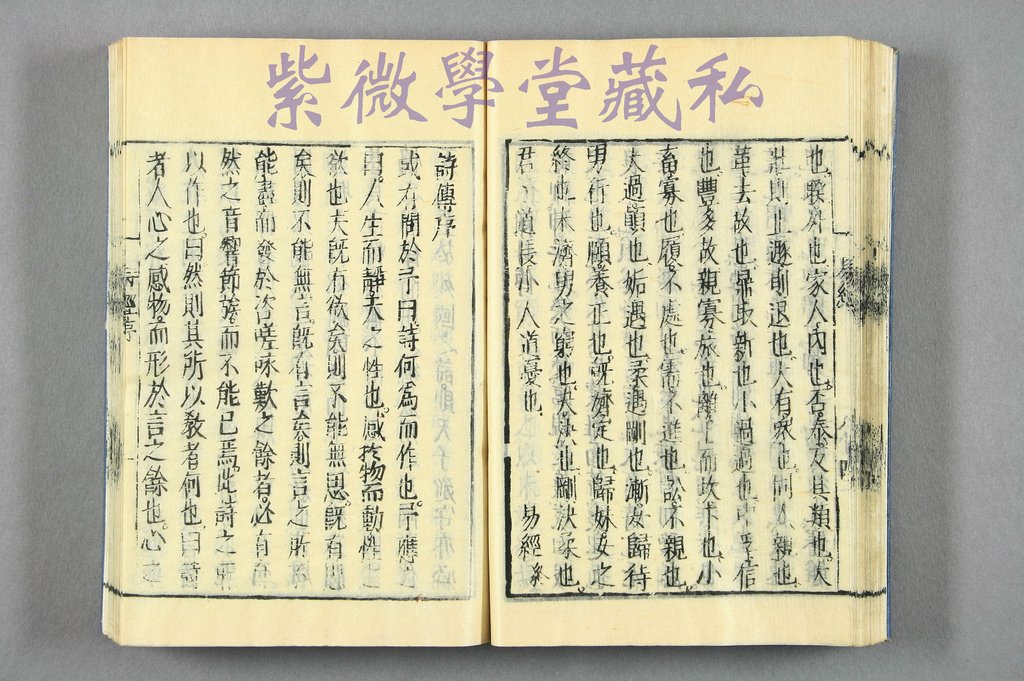 紫微學堂藏私
也睽外也家人內也否泰反其類也大
壯則止遯則退也大有衆也同人親也
革去故也鼎取新也小過過也中孚信
也豐多故親寡旅也離上而坎下也小
畜寡也履不處也需不進也訟不親也
大過顛也姤遇也柔遇剛也漸女歸待
男行也頤養正也旣濟定也歸妹女之
終也未濟男之窮也夬決也剛決柔也
君子道長小人道憂也 易經終
詩傳序
或有問於予曰詩何爲而作也。予應之
曰。人生而靜天之性也。感於物而動性之
欲也夫旣有欲矣則不能無思。旣有思
矣則不能無言。旣有言矣則言之所不
能盡而發於咨嗟咏歎之餘者。必有自
然之音響節族。而不能已焉。此詩之所
以作也。曰然則其所以敎者何也。曰詩
者人心之感物而形於言之餘也。心之
易經
詩經序